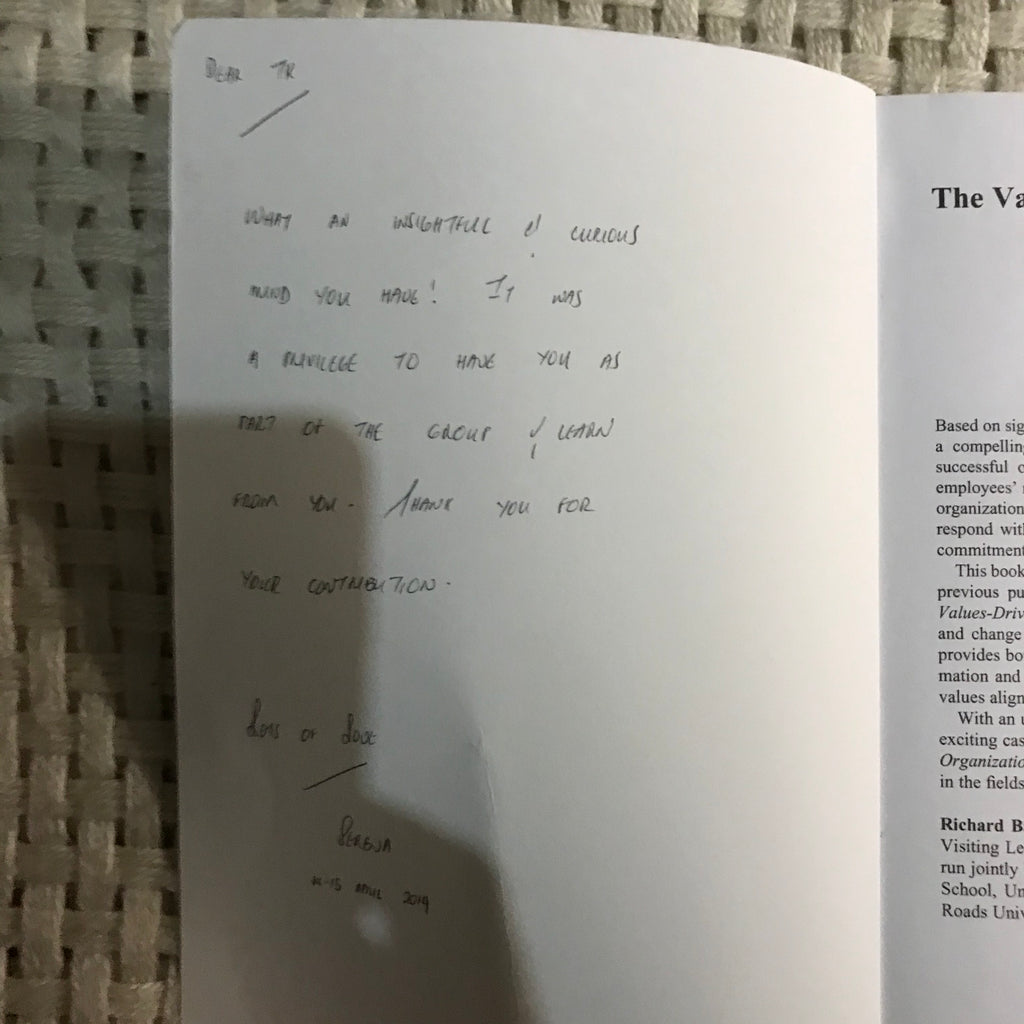 DEAR TK
WHAT AN INSIGHTFULL & CURIOUS
MIND YOU HAVE! IT WAS
A PRIVILEGE TO HAVE YOU AS
PART OF THE GROUP & LEARN
FROM YOU. THANK YOU FOR
YOUR CONTRIBUTION.
Lots of Love
SERENA
15 APRIL 2019
The Va
Based on sig
a compelling
successful c
employees’
organization
respond with
commitment
This book
previous pu
Values-Driv
and change
provides bo
mation and
values align
With an u
exciting cas
Organizatio
in the fields
Richard B
Visiting Le
run jointly
School, Un
Roads Univ